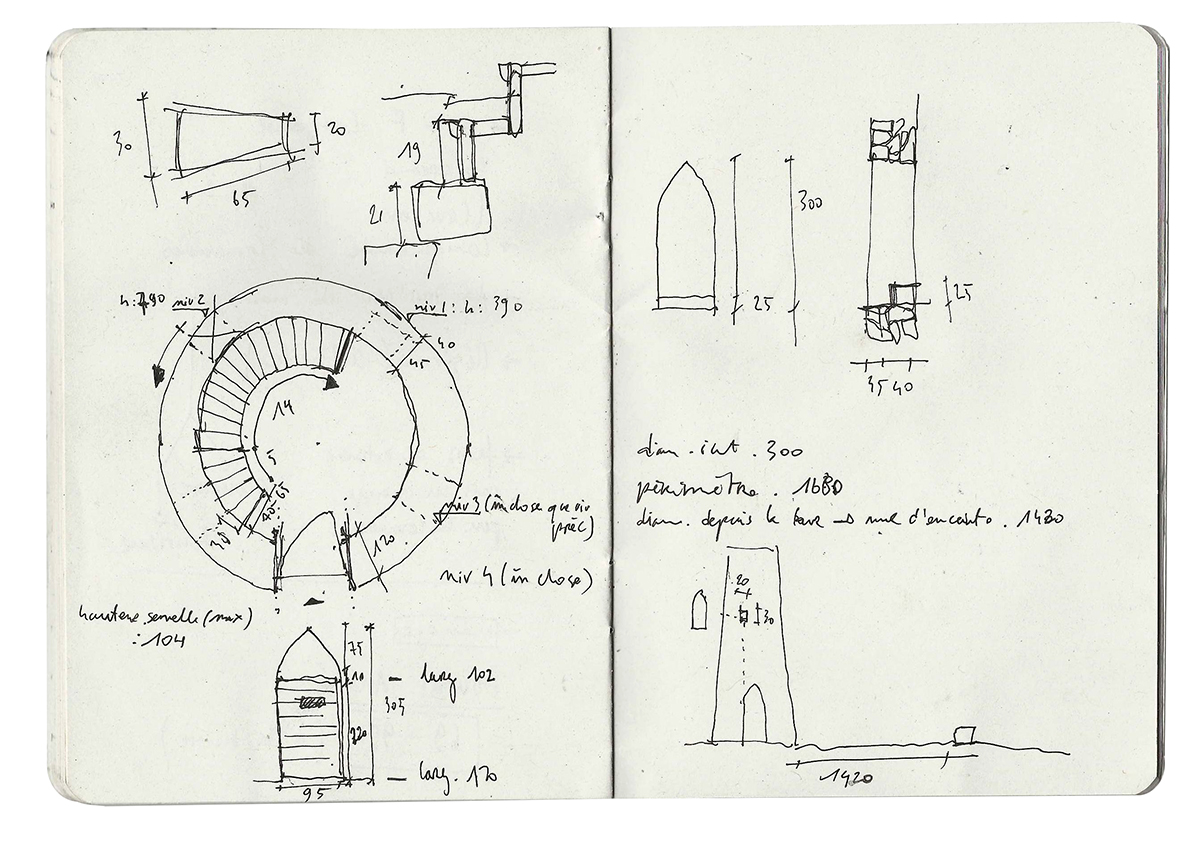 30
20
65
19
21
niv 2
niv 1 : h : 390
40
45
14
5
40-65
30
120
niv 3 (in close que niv
préc)
niv 4 (in close)
hauteur semelle (max)
: 104
75
10
305
220
larg 102
larg. 120
95
300
25
25
35 40
diam. int. 300
périmètre. 1680
diam. depuis la tour → mur d'enceinte. 1420
20
30
1420